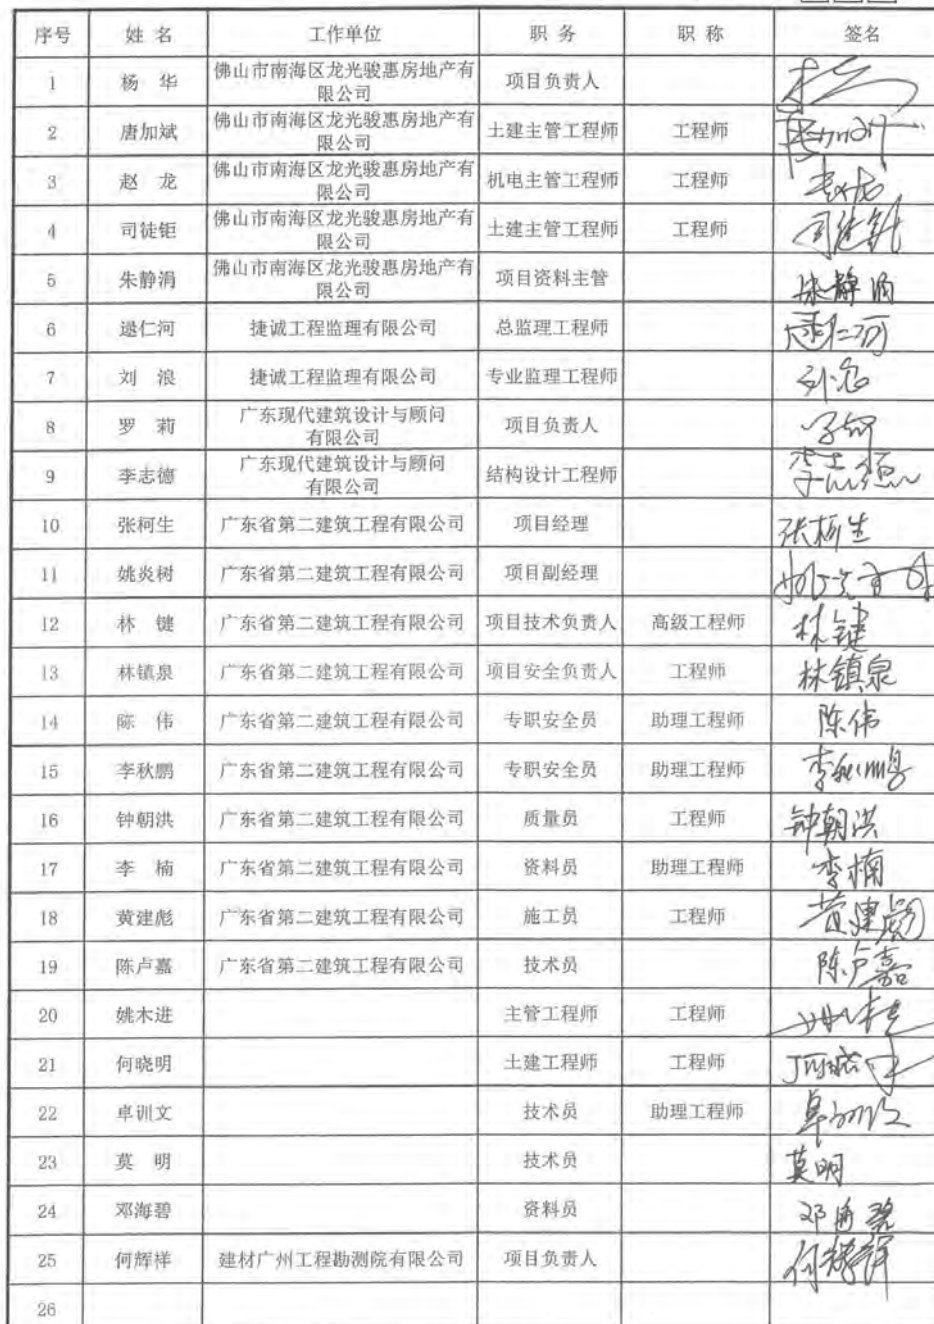 序号 姓 名 工作单位 职 务 职 称 签名
1 杨 华 佛山市南海区龙光骏惠房地产有 项目负责人
限公司
2 唐加斌 佛山市南海区龙光骏惠房地产有 土建主管工程师 工程师
限公司
3 赵 龙 佛山市南海区龙光骏惠房地产有 机电主管工程师 工程师 赵龙
限公司
4 司徒钜 佛山市南海区龙光骏惠房地产有 土建主管工程师 工程师 司徒钜
限公司
5 朱静涓 佛山市南海区龙光骏惠房地产有 项目资料主管 朱静涓
限公司
6 仁河 捷诚工程监理有限公司 总监理工程师 仁河
7 刘 浪 捷诚工程监理有限公司 专业监理工程师
8 罗 莉 广东现代建筑设计与顾问 项目负责人
有限公司
9 李志德 广东现代建筑设计与顾问 结构设计工程师 李志德
有限公司
10 张柯生 广东省第二建筑工程有限公司 项目经理 张柯生
11 姚炎树 广东省第二建筑工程有限公司 项目副经理
12 林 键 广东省第二建筑工程有限公司 项目技术负责人 高级工程师 林键
13 林镇泉 广东省第二建筑工程有限公司 项目安全负责人 工程师 林镇泉
14 陈 伟 广东省第二建筑工程有限公司 专职安全员 助理工程师 陈伟
15 李秋鹏 广东省第二建筑工程有限公司 专职安全员 助理工程师 李秋鹏
16 钟朝洪 广东省第二建筑工程有限公司 质量员 工程师 钟朝洪
17 李 楠 广东省第二建筑工程有限公司 资料员 助理工程师 李楠
18 黄建彪 广东省第二建筑工程有限公司 施工员 工程师 黄建彪
19 陈卢嘉 广东省第二建筑工程有限公司 技术员 陈卢嘉
20 姚木进 主管工程师 工程师
21 何晓明 土建工程师 工程师
22 卓训文 技术员 助理工程师 卓训文
23 莫 明 技术员 莫明
24 邓海碧 资料员 邓海碧
25 何辉祥 建材广州工程勘测院有限公司 项目负责人
26